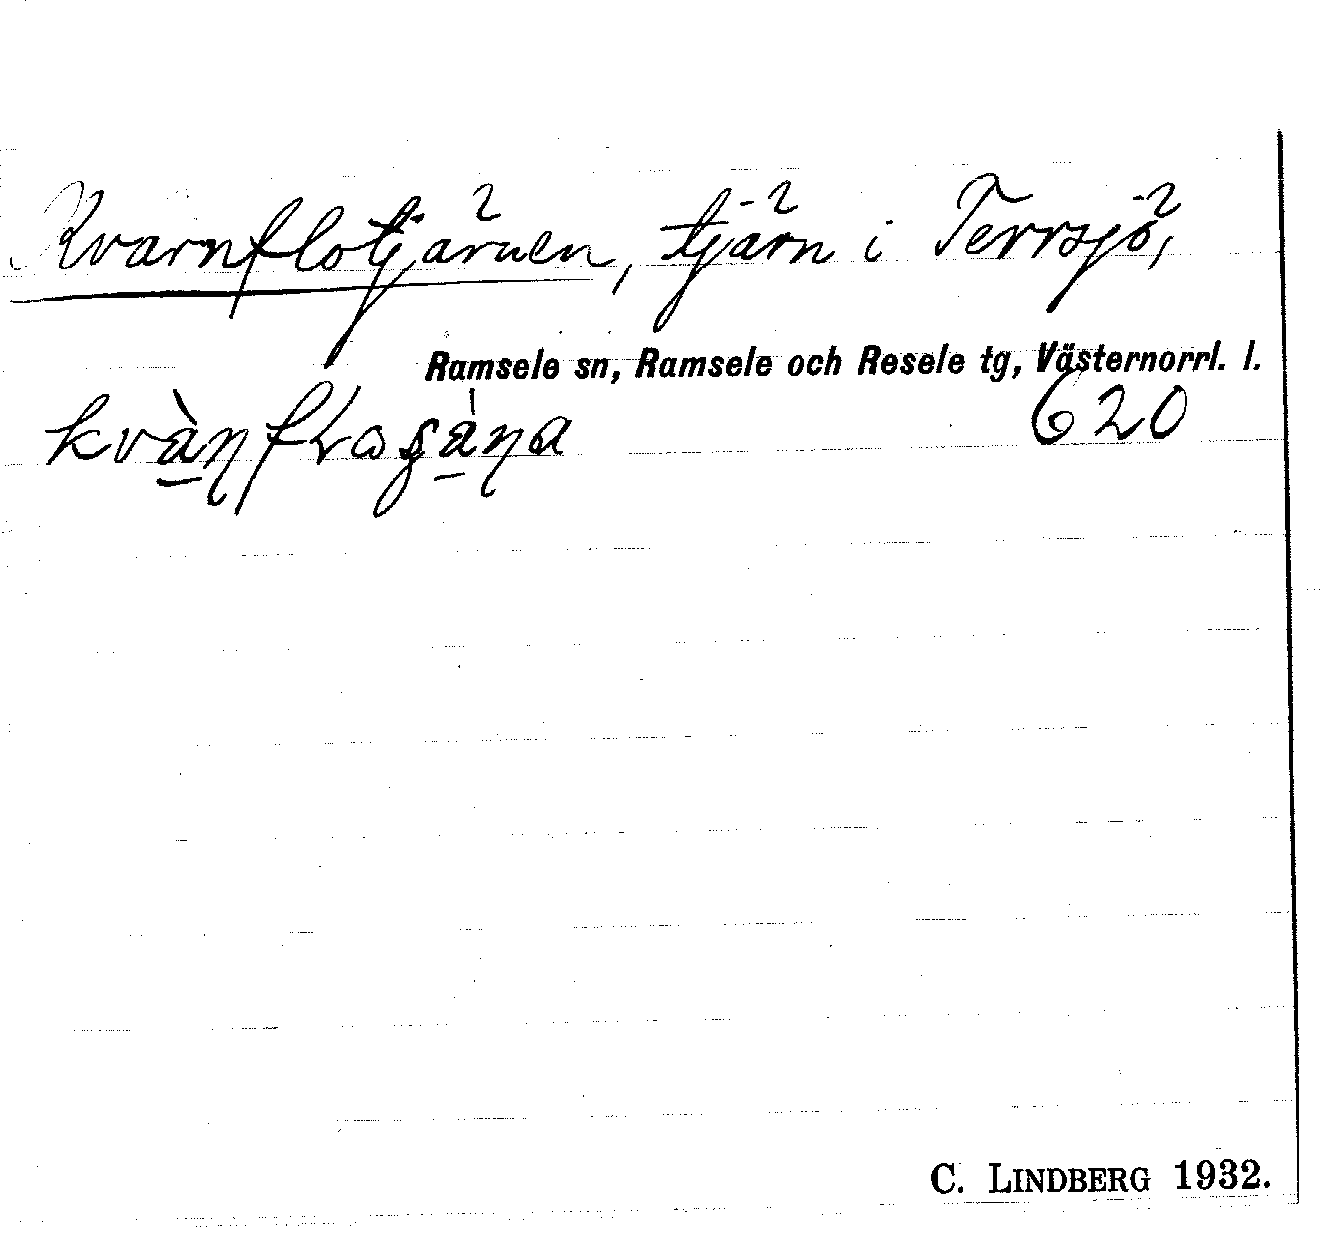 Kvarnflotjärnen, tjärn i Terrsjö,
Ramsele sn, Ramsele och Resele tg, Västernorrl. l.
620
C. LINDBERG 1932.